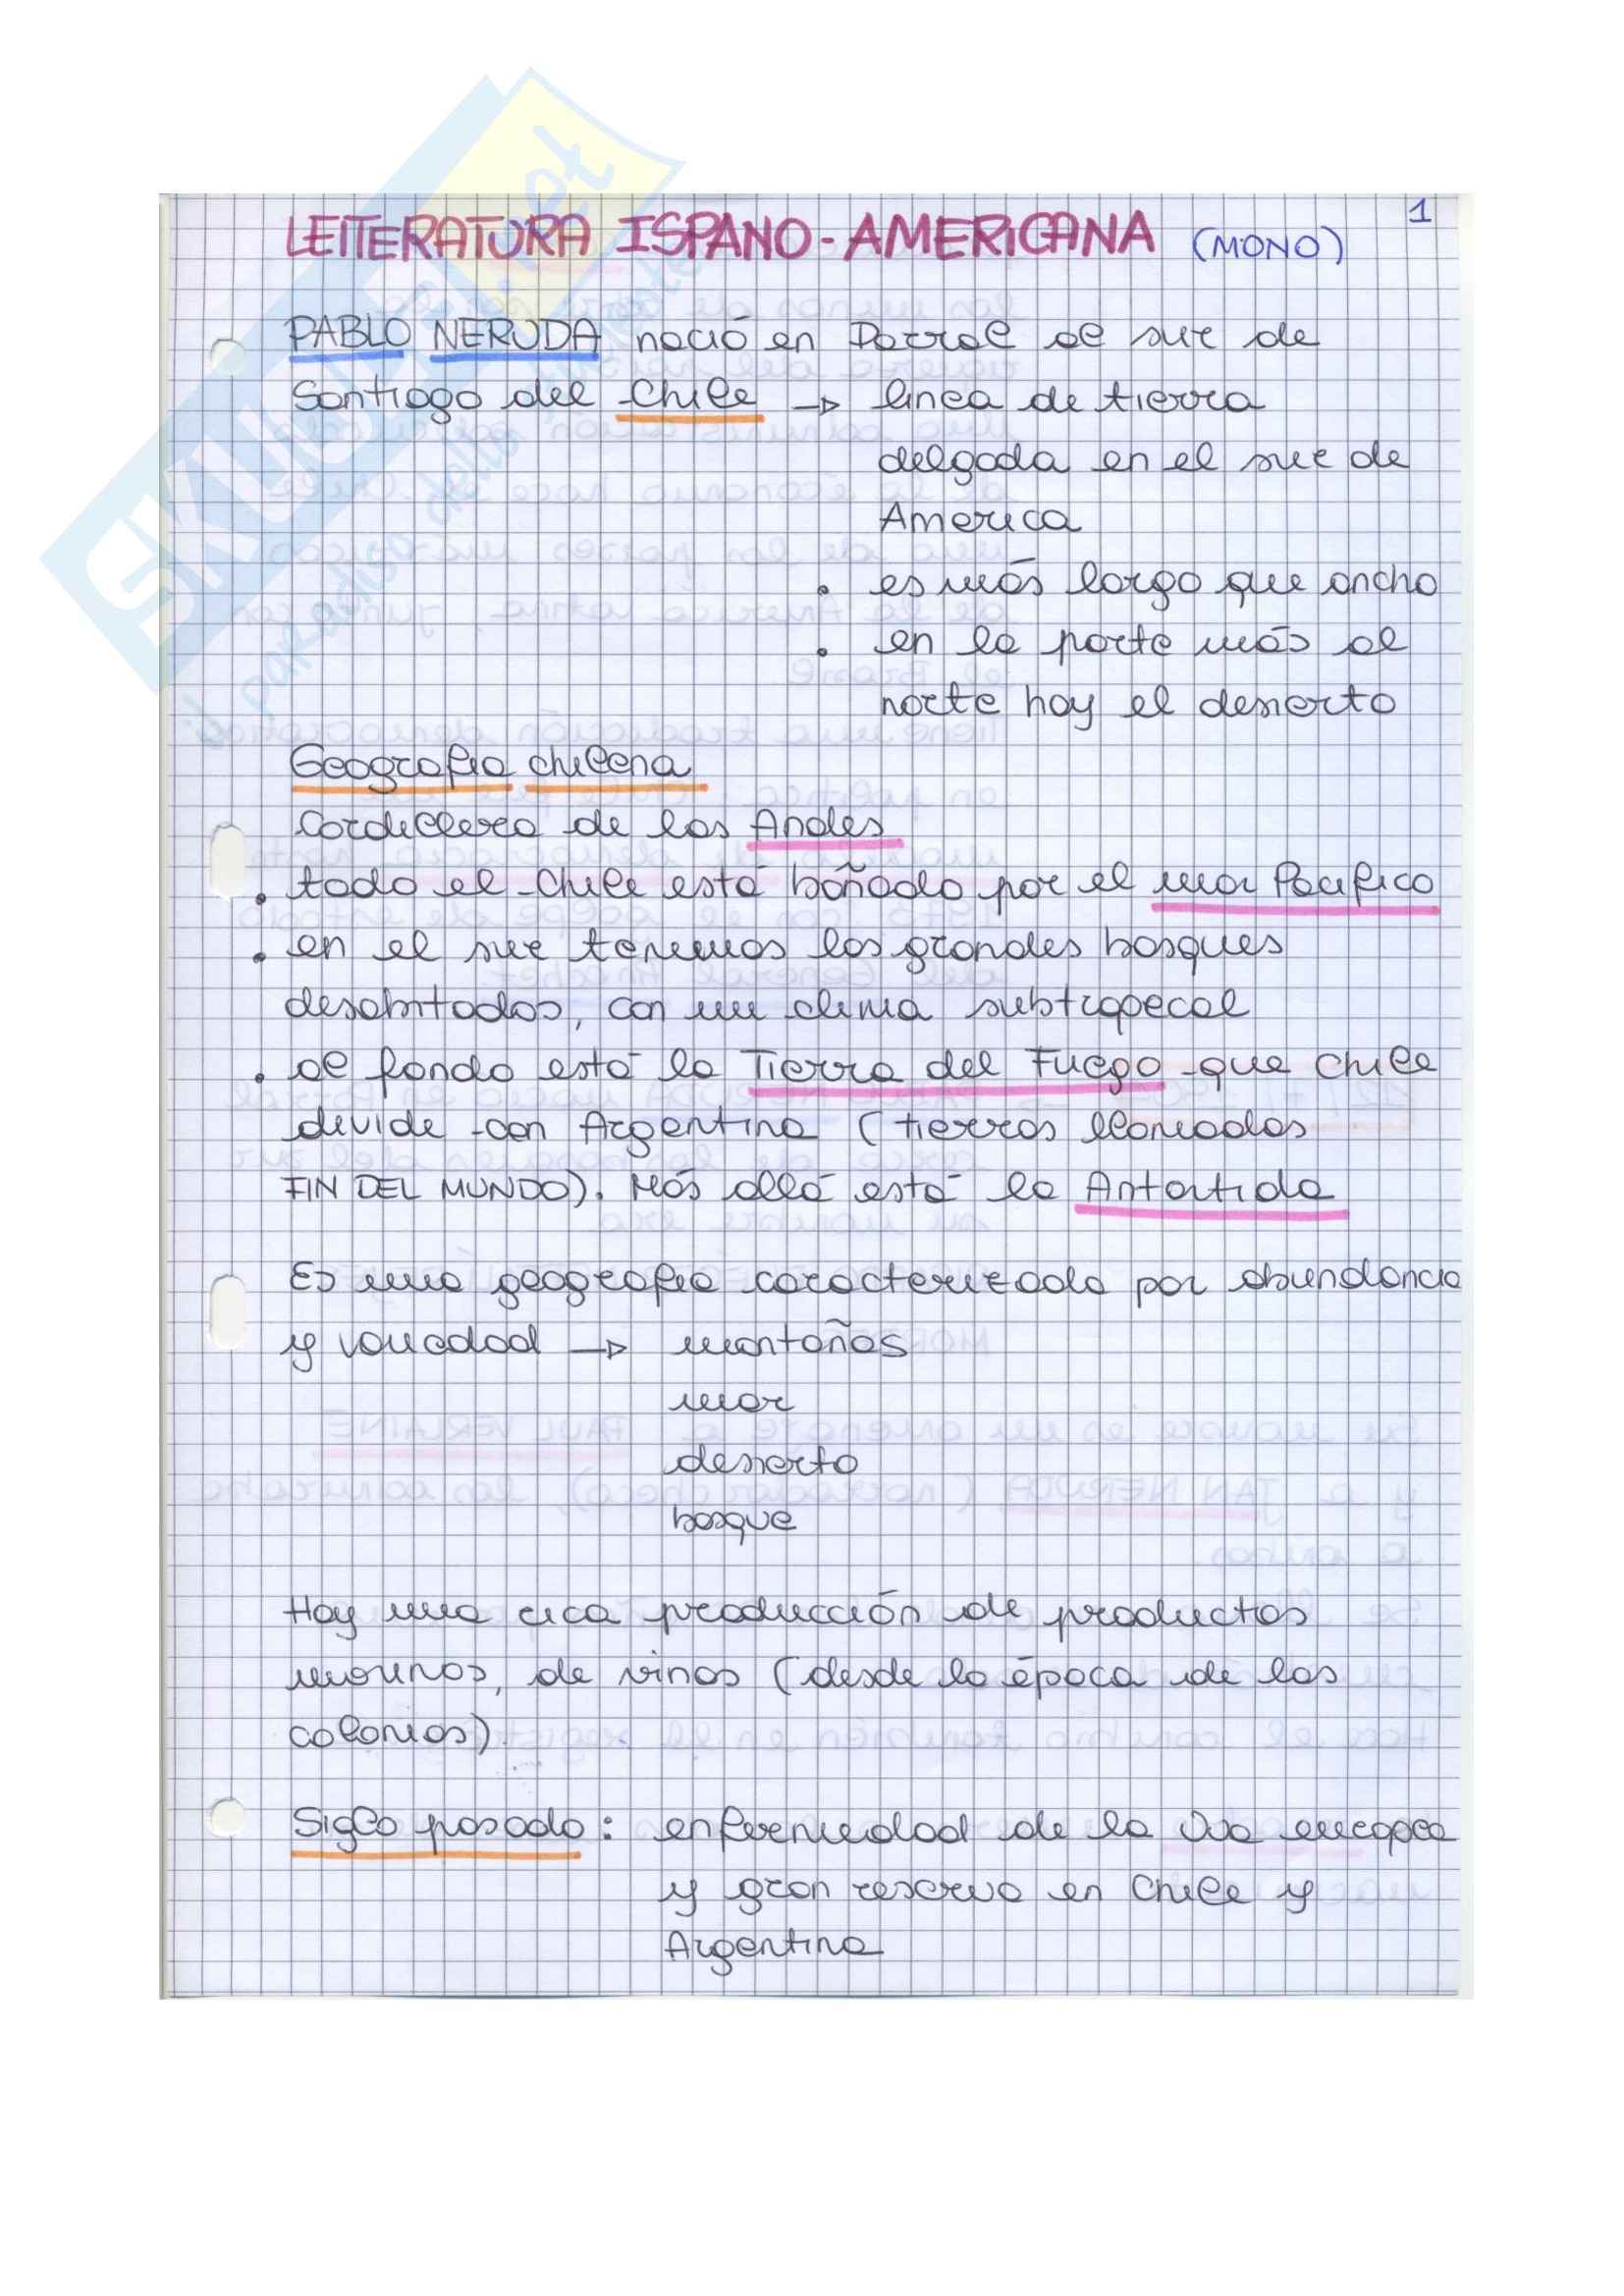 LEITERATURA ISPANO-AMERICANA (MONO) 1
PABLO NERUDA nació en Parral al sur de
Santiago del Chile → linea de tierra
delgada en el sur de
America
• es más largo que ancho
• en la parte más al
norte hay el desierto
Geografia chilena
Cordillera de los Andes
• todo el Chile está bañado por el mar Pacifico
• en el sur tenemos los grandes bosques
desabitados, con un clima subtropecal
• al fondo está la Tierra del Fuego que Chile
divide con Argentina (tierras llamadas
FIN DEL MUNDO). Más allá está la Antartida
Es una geografia caracterizada por abundancia
y variedad → montañas
mar
desierto
bosque
Hay una rica producción de productos
marinos, de vinos (desde la época de las
colonias).
Siglo pasado: enfermedad de la Uva europea
y gran reserva en Chile y
Argentina
SKUOLA.net
il paradiso dello studente